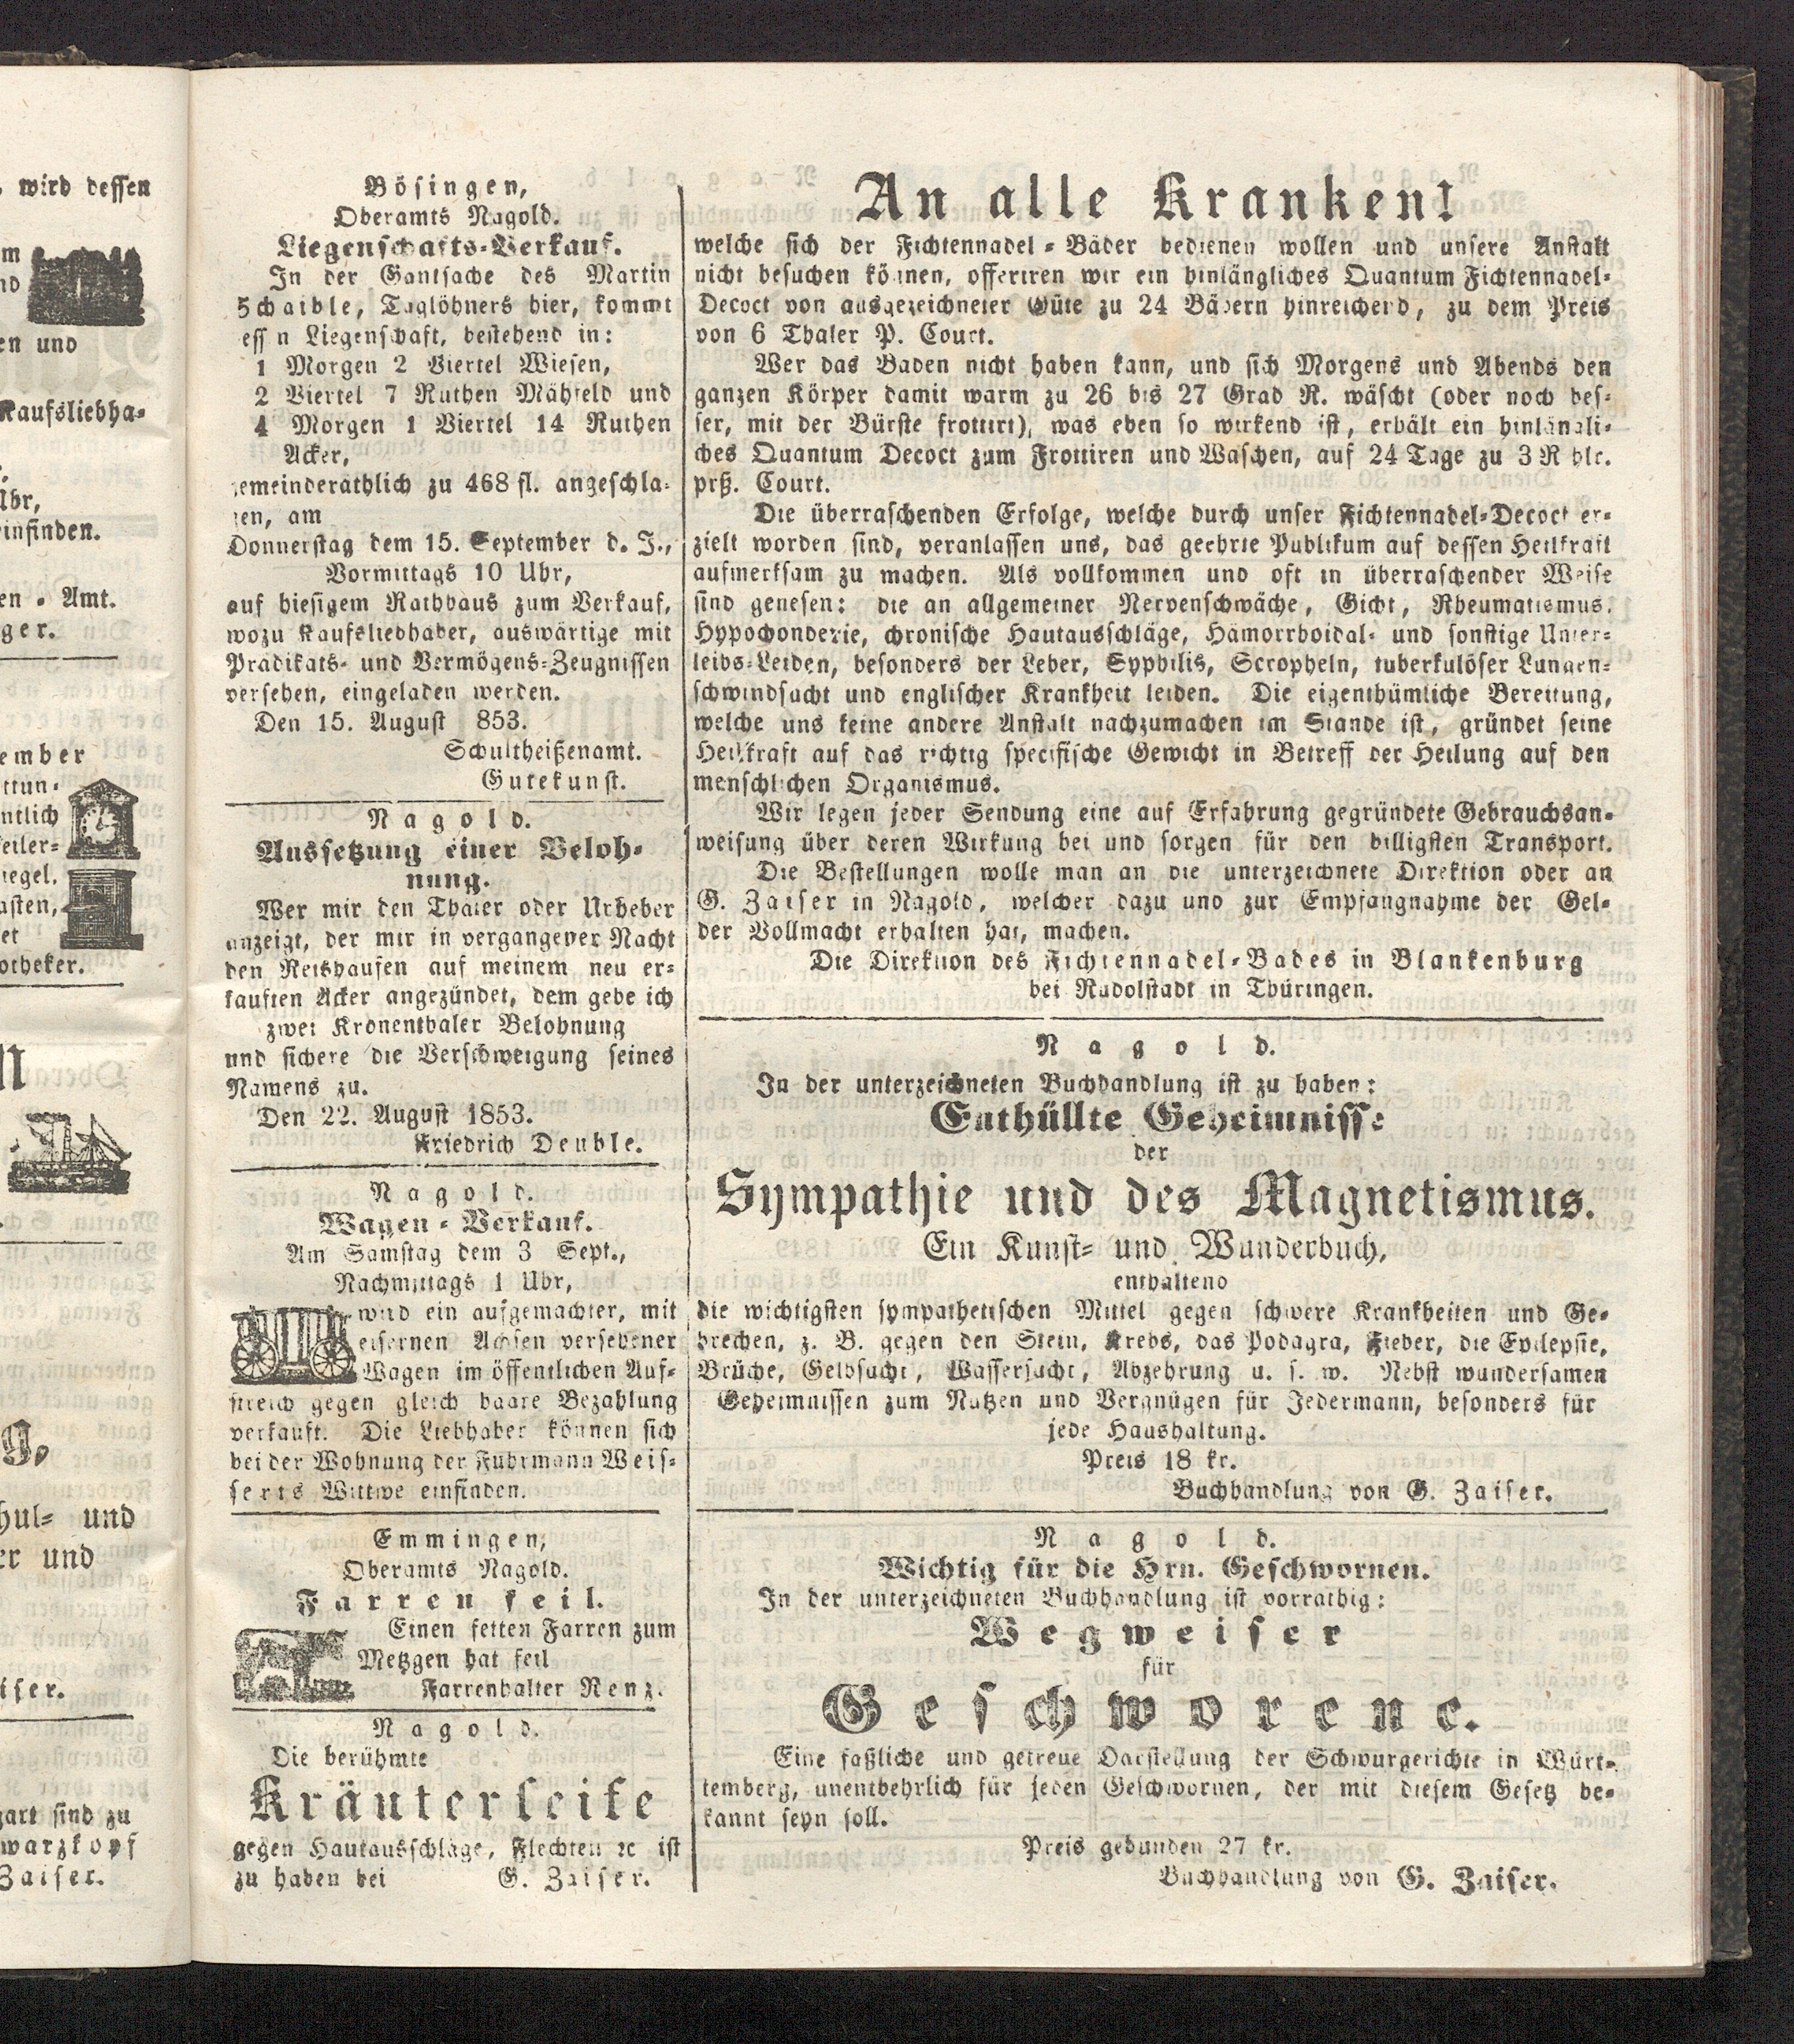 wird dessen
en und
Kaufsliebha-
Uhr,
einfinden.
en - Amt.
ger.
ember
ttun-
ntlich
eiler-
iegel,
asten,
et
otheker.
g,
hul- und
er und
iser.
gart sind zu
warzkopf
Zaiser.
Bösingen,
Oberamts Nagold.
Liegenschafts-Verkauf.
In der Gantsache des Martin
Schaible, Taglöhners hier, kommt
essn Liegenschaft, bestehend in:
1 Morgen 2 Viertel Wiesen,
2 Viertel 7 Ruthen Mähfeld und
4 Morgen 1 Viertel 14 Ruthen
Acker,
gemeinderäthlich zu 468 fl. angeschla-
gen, am
Donnerstag dem 15. September d. J.,
Vormittags 10 Uhr,
auf hiesigem Rathhaus zum Verkauf,
wozu Kaufsliebhaber, auswärtige mit
Prädikats- und Vermögens-Zeugnissen
versehen, eingeladen werden.
Den 15. August 853.
Schultheißenamt.
Gutekunst.
Nagold.
Aussetzung einer Beloh-
nung.
Wer mir den Thäter oder Urheber
anzeigt, der mir in vergangener Nacht
den Reishaufen auf meinem neu er-
kauften Acker angezündet, dem gebe ich
zwei Kronenthaler Belohnung
und sichere die Verschweigung seines
Namens zu.
Den 22. August 1853.
Friedrich Deuble.
Nagold.
Wagen-Verkauf.
Am Samstag dem 3 Sept.,
Nachmittags 1 Uhr,
wird ein aufgemachter, mit
eisernen Achsen versehener
Wagen im öffentlichen Auf-
streich gegen gleich baare Bezahlung
verkauft. Die Liebhaber können sich
bei der Wohnung der Fuhrmann Weis-
serts Wittwe einfinden.
Emmingen,
Oberamts Nagold.
Farren feil.
Einen fetten Farren zum
Metzgen hat feil
Farrenhalter Renz.
Nagold.
Die berühmte
Kräuterseife
gegen Hautausschläge, Flechten ꝛc ist
zu haben bei G. Zaiser.
An alle Kranken!
welche sich der Fichtennadel-Bäder bedienen wollen und unsere Anstalt
nicht besuchen können, offeriren wir ein hinlängliches Quantum Fichtennadel-
Decoct von ausgezeichneter Güte zu 24 Bädern hinreichend, zu dem Preis
von 6 Thaler P. Court.
Wer das Baden nicht haben kann, und sich Morgens und Abends den
ganzen Körper damit warm zu 26 bis 27 Grad R. wäscht (oder noch bes-
ser, mit der Bürste frottirt), was eben so wirkend ist, erhält ein hinlängli-
ches Quantum Decoct zum Frottiren und Waschen, auf 24 Tage zu 3 Rthlr.
prß. Court.
Die überraschenden Erfolge, welche durch unser Fichtennadel-Decoct er-
zielt worden sind, veranlassen uns, das geehrte Publikum auf dessen Heilkraft
aufmerksam zu machen. Als vollkommen und oft in überraschender Weise
sind genesen: die an allgemeiner Nervenschwäche, Gicht, Rheumatismus,
Hypochonderie, chronische Hautausschläge, Hämorrhoidal- und sonstige Unter-
leibs-Leiden, besonders der Leber, Syphilis, Scropheln, tuberkulöser Lungen-
schwindsucht und englischer Krankheit leiden. Die eigenthümliche Bereitung,
welche uns keine andere Anstalt nachzumachen im Stande ist, gründet seine
Heilkraft auf das richtig specifische Gewicht in Betreff der Heilung auf den
menschlichen Organismus.
Wir legen jeder Sendung eine auf Erfahrung gegründete Gebrauchsan-
weisung über deren Wirkung bei und sorgen für den billigsten Transport.
Die Bestellungen wolle man an die unterzeichnete Direktion oder an
G. Zaiser in Nagold, welcher dazu und zur Empfangnahme der Gel-
der Vollmacht erhalten hat, machen.
Die Direktion des Fichtennadel-Bades in Blankenburg
bei Rudolstadt in Thüringen.
Nagold.
In der unterzeichneten Buchhandlung ist zu haben:
Enthüllte Geheimnisse
der
Sympathie und des Magnetismus.
Ein Kunst- und Wunderbuch,
enthaltend
die wichtigsten sympathetischen Mittel gegen schwere Krankheiten und Ge-
brechen, z. B. gegen den Stein, Krebs, das Podagra, Fieber, die Epilepsie,
Brüche, Gelbsucht, Wassersucht, Abzehrung u. s. w. Nebst wundersamen
Geheimnissen zum Nutzen und Vergnügen für Jedermann, besonders für
jede Haushaltung.
Preis 18 kr.
Buchhandlung von G. Zaiser.
Nagold.
Wichtig für die Hrn. Geschwornen.
In der unterzeichneten Buchhandlung ist vorräthig:
Wegweiser
für
Geschworene.
Eine faßliche und getreue Darstellung der Schwurgerichte in Würt-
temberg, unentbehrlich für jeden Geschwornen, der mit diesem Gesetz be-
kannt seyn soll.
Preis gebunden 27 kr.
Buchhandlung von G. Zaiser.